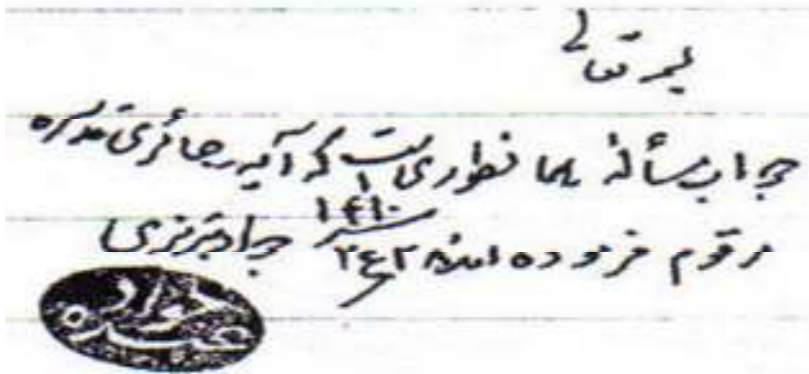 بسمه تعالی
جواب مسألهٔ همانطوری است که آیه الله حائری قدس سره
مرقوم فرموده اند ۲۸ ع۲ ۱۴۱۰ جواد تبریزی
جواد